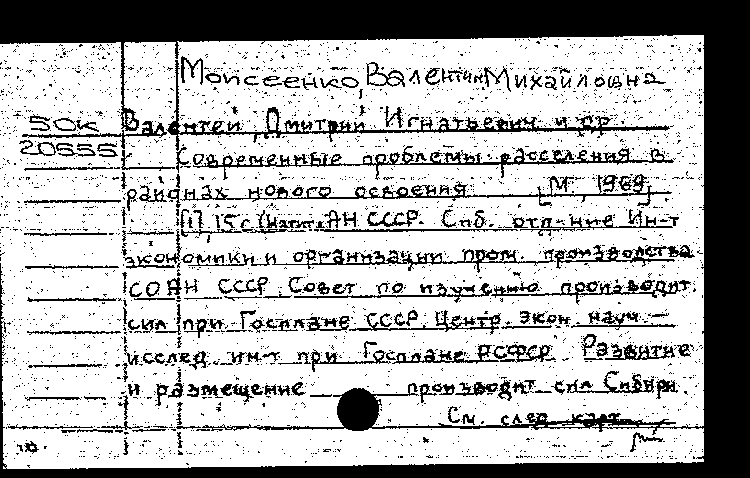 Моисеенко, Валентина Михайловна
50K Валентей, Дмитрий Игнатьевич и др
20655 Современные проблемы расселения в
районах нового освоения [М, 1969]
[1], 15 с (Напеч. АН СССР. Сиб. отд-ние Ин-т
экономики и организации пром. производства
СОАН СССР Совет по изучению производит.
сил при Госплане СССР. Центр. экон. науч.-
исслед. ин-т при Госплане РСФСР Развитие
и размещение производит сил Сибири.
См. след. карт.